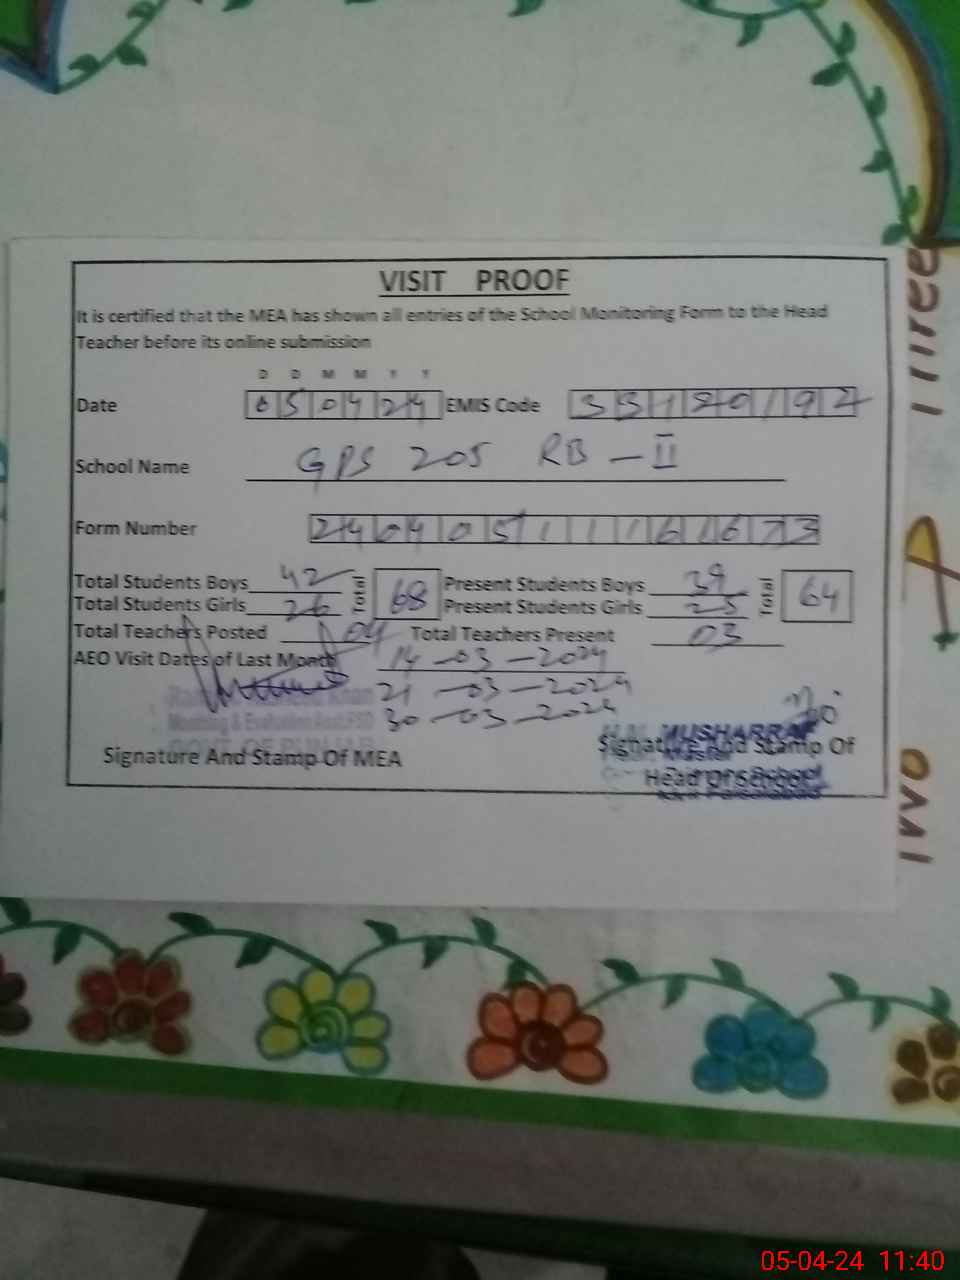 VISIT PROOF
It is certified that the MEA has shown all entries of the School Monitoring Form to the Head
Teacher before its online submission
D D M M Y Y
Date 050424 EMIS Code 33120192
School Name GPS 205 RB - II
Form Number
Total Students Boys 42 Total 68 Present Students Boys 39 Total 64
Total Students Girls 26 Present Students Girls 25
Total Teachers Posted 04 Total Teachers Present 03
AEO Visit Dates of Last Month 14-03-2024
21-03-2024
30-03-2024
Khan
MUSHARRAF
Signature And Stamp Of MEA Signature And Stamp Of
Head Of School
Three
Two
05-04-24 11:40